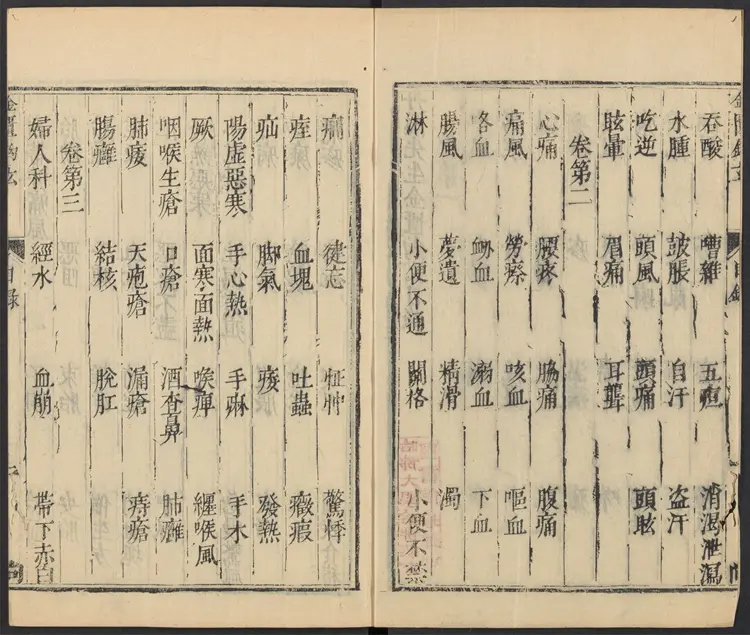 吞酸 嘈雜 五疸 消渴泄瀉
水腫 鼓脹 自汗 盜汗
吃逆 頭風 頭痛 頭眩
眩暈 眉痛 耳聾
卷第二
心痛 腰疼 脇痛 腹痛
痛風 勞瘵 咳血 嘔血
咯血 衂血 溺血 下血
腸風 夢遺 精滑 濁
淋 小便不通 關格 小便不禁
癎 健忘 怔忡 驚悸
痓 血塊 吐蟲 癥瘕
疝 脚氣 痿 發熱
陽虛惡寒 手心熱 手麻 手木
厥 面寒面熱 喉痹 纏喉風
咽喉生瘡 口瘡 酒查鼻 肺癰
肺痿 天疱瘡 漏瘡 痔瘡
腸癰 結核 脫肛
卷第三
婦人科 經水 血崩 帶下赤白
金匱鉤玄 目錄